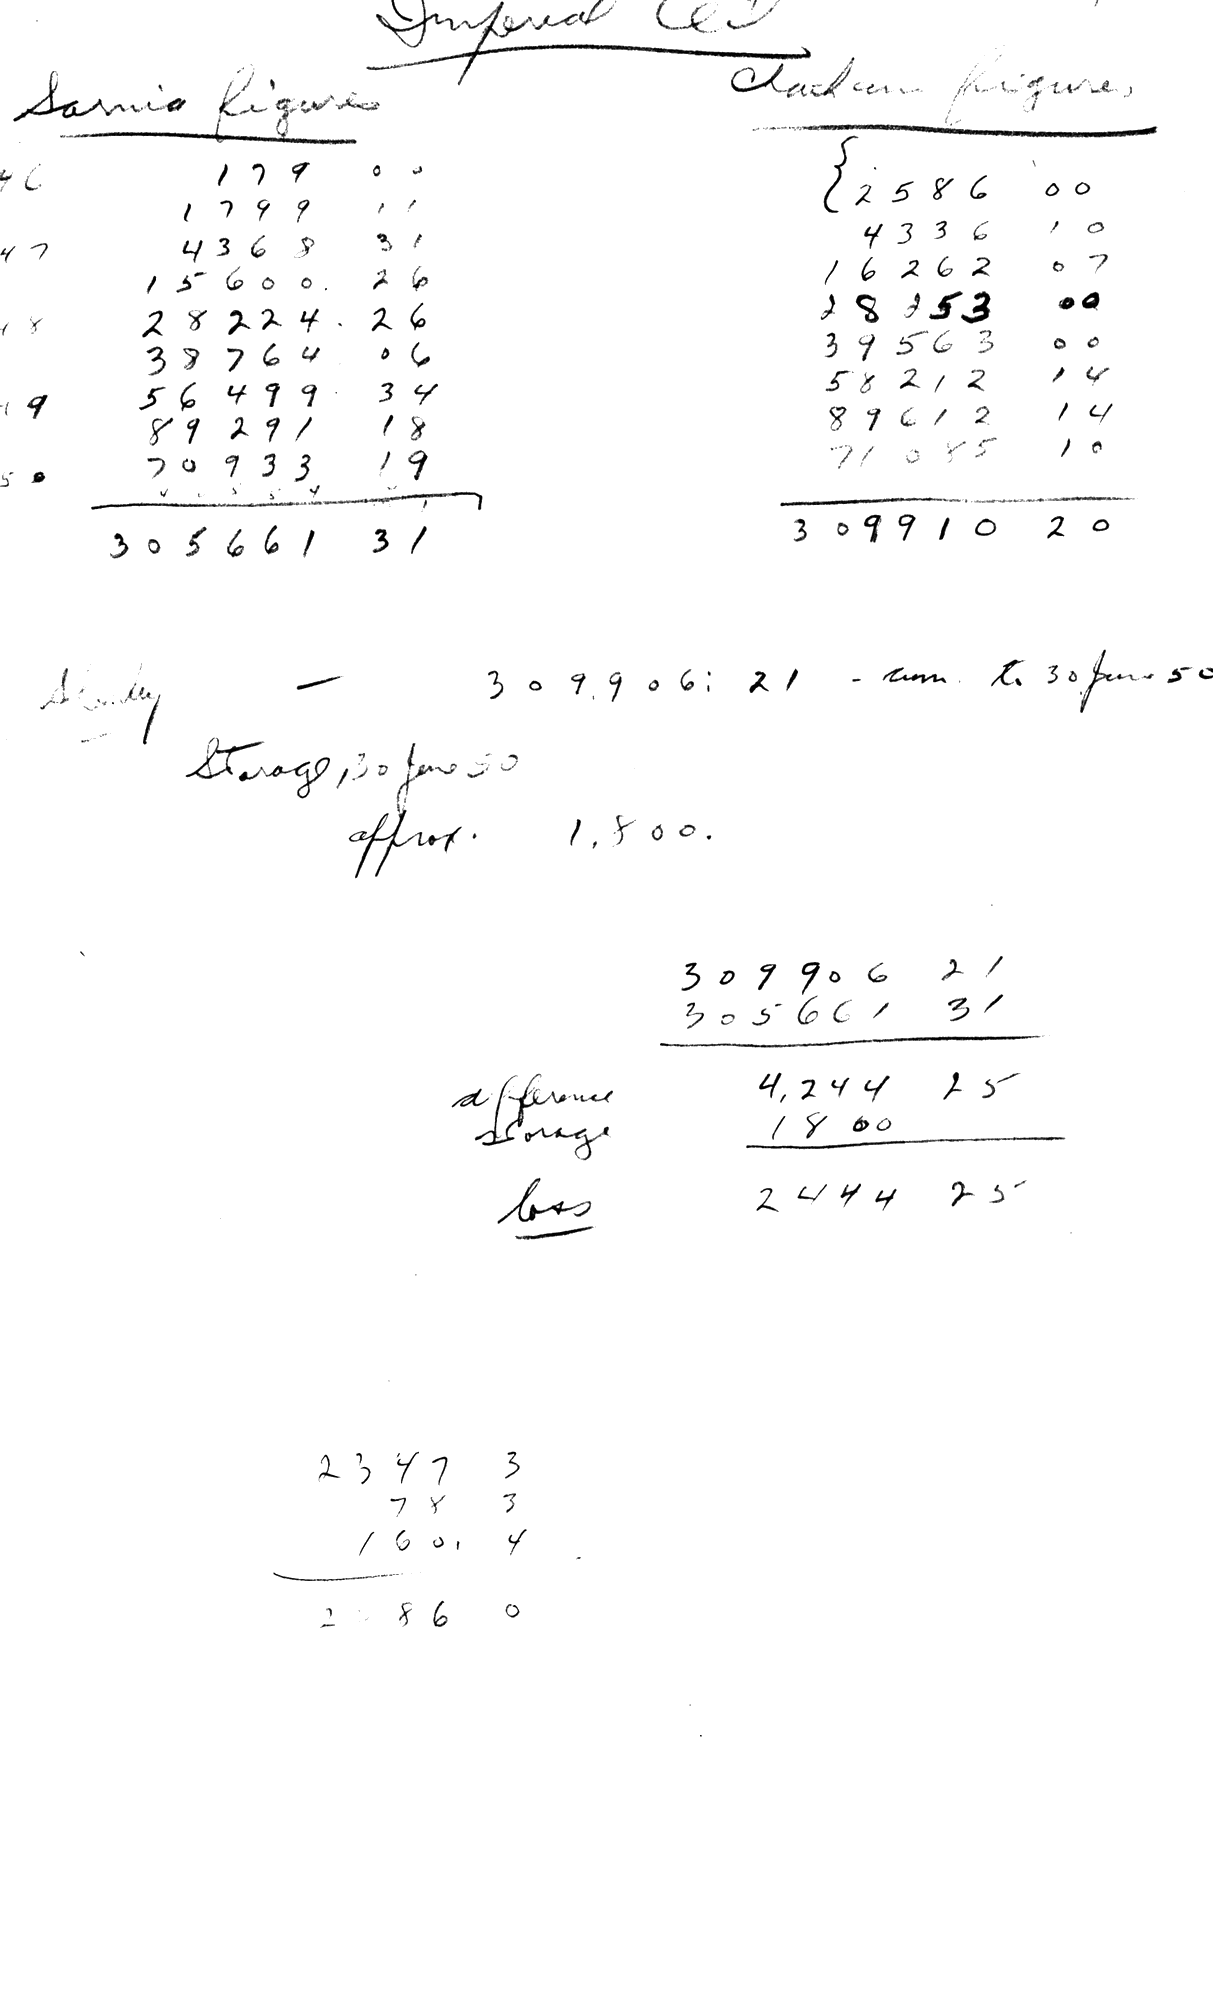 Imperial Oil
Sarnia figures Chatham figures
46 179 00 { 2586 00
1799 11 4336 10
47 4368 31 16262 07
15600. 26 28253 00
48 28224. 26 39563 00
38764 06 58212 14
49 56499 34 89612 14
89291 18 71085 10
50 70933 19
305661 31 309910 20
— 309,906: 21 - cum. to 30 June 50
Storage, 30 June 50
approx. 1,800.
309906 21
305661 31
difference 4,244 25
storage 1800
loss 2444 25
2347 3
78 3
160. 4
2 86 0